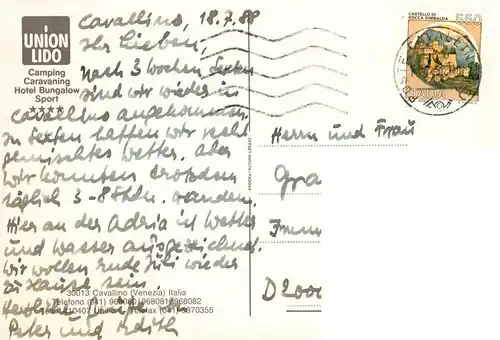 Cavallino, 18.7.88
Ihr Lieben,
nach 3 Wochen Sexten
sind wir wieder in
Cavallino angekommen.
In Sexten hatten wir recht
gemischtes Wetter, aber
wir konnten trotzdem
täglich 3-8 Stdn. wandern.
Hier an der Adria ist Wetter
und Wasser ausgezeichnet.
Wir wollen Ende Juli wieder
zu Hause sein.
Herzliche Grüße von
Peter und Edith
UNION
LIDO
Camping
Caravaning
Hotel Bungalow
Sport
★★★★
30013 Cavallino (Venezia) Italia
Telefono (041) 968080/968081/968082
Telefax (041) 5370355
CASTELLO DI
ROCCA SINIBALDA
650
ITALIA
Herrn und Frau
Gra
D 2000